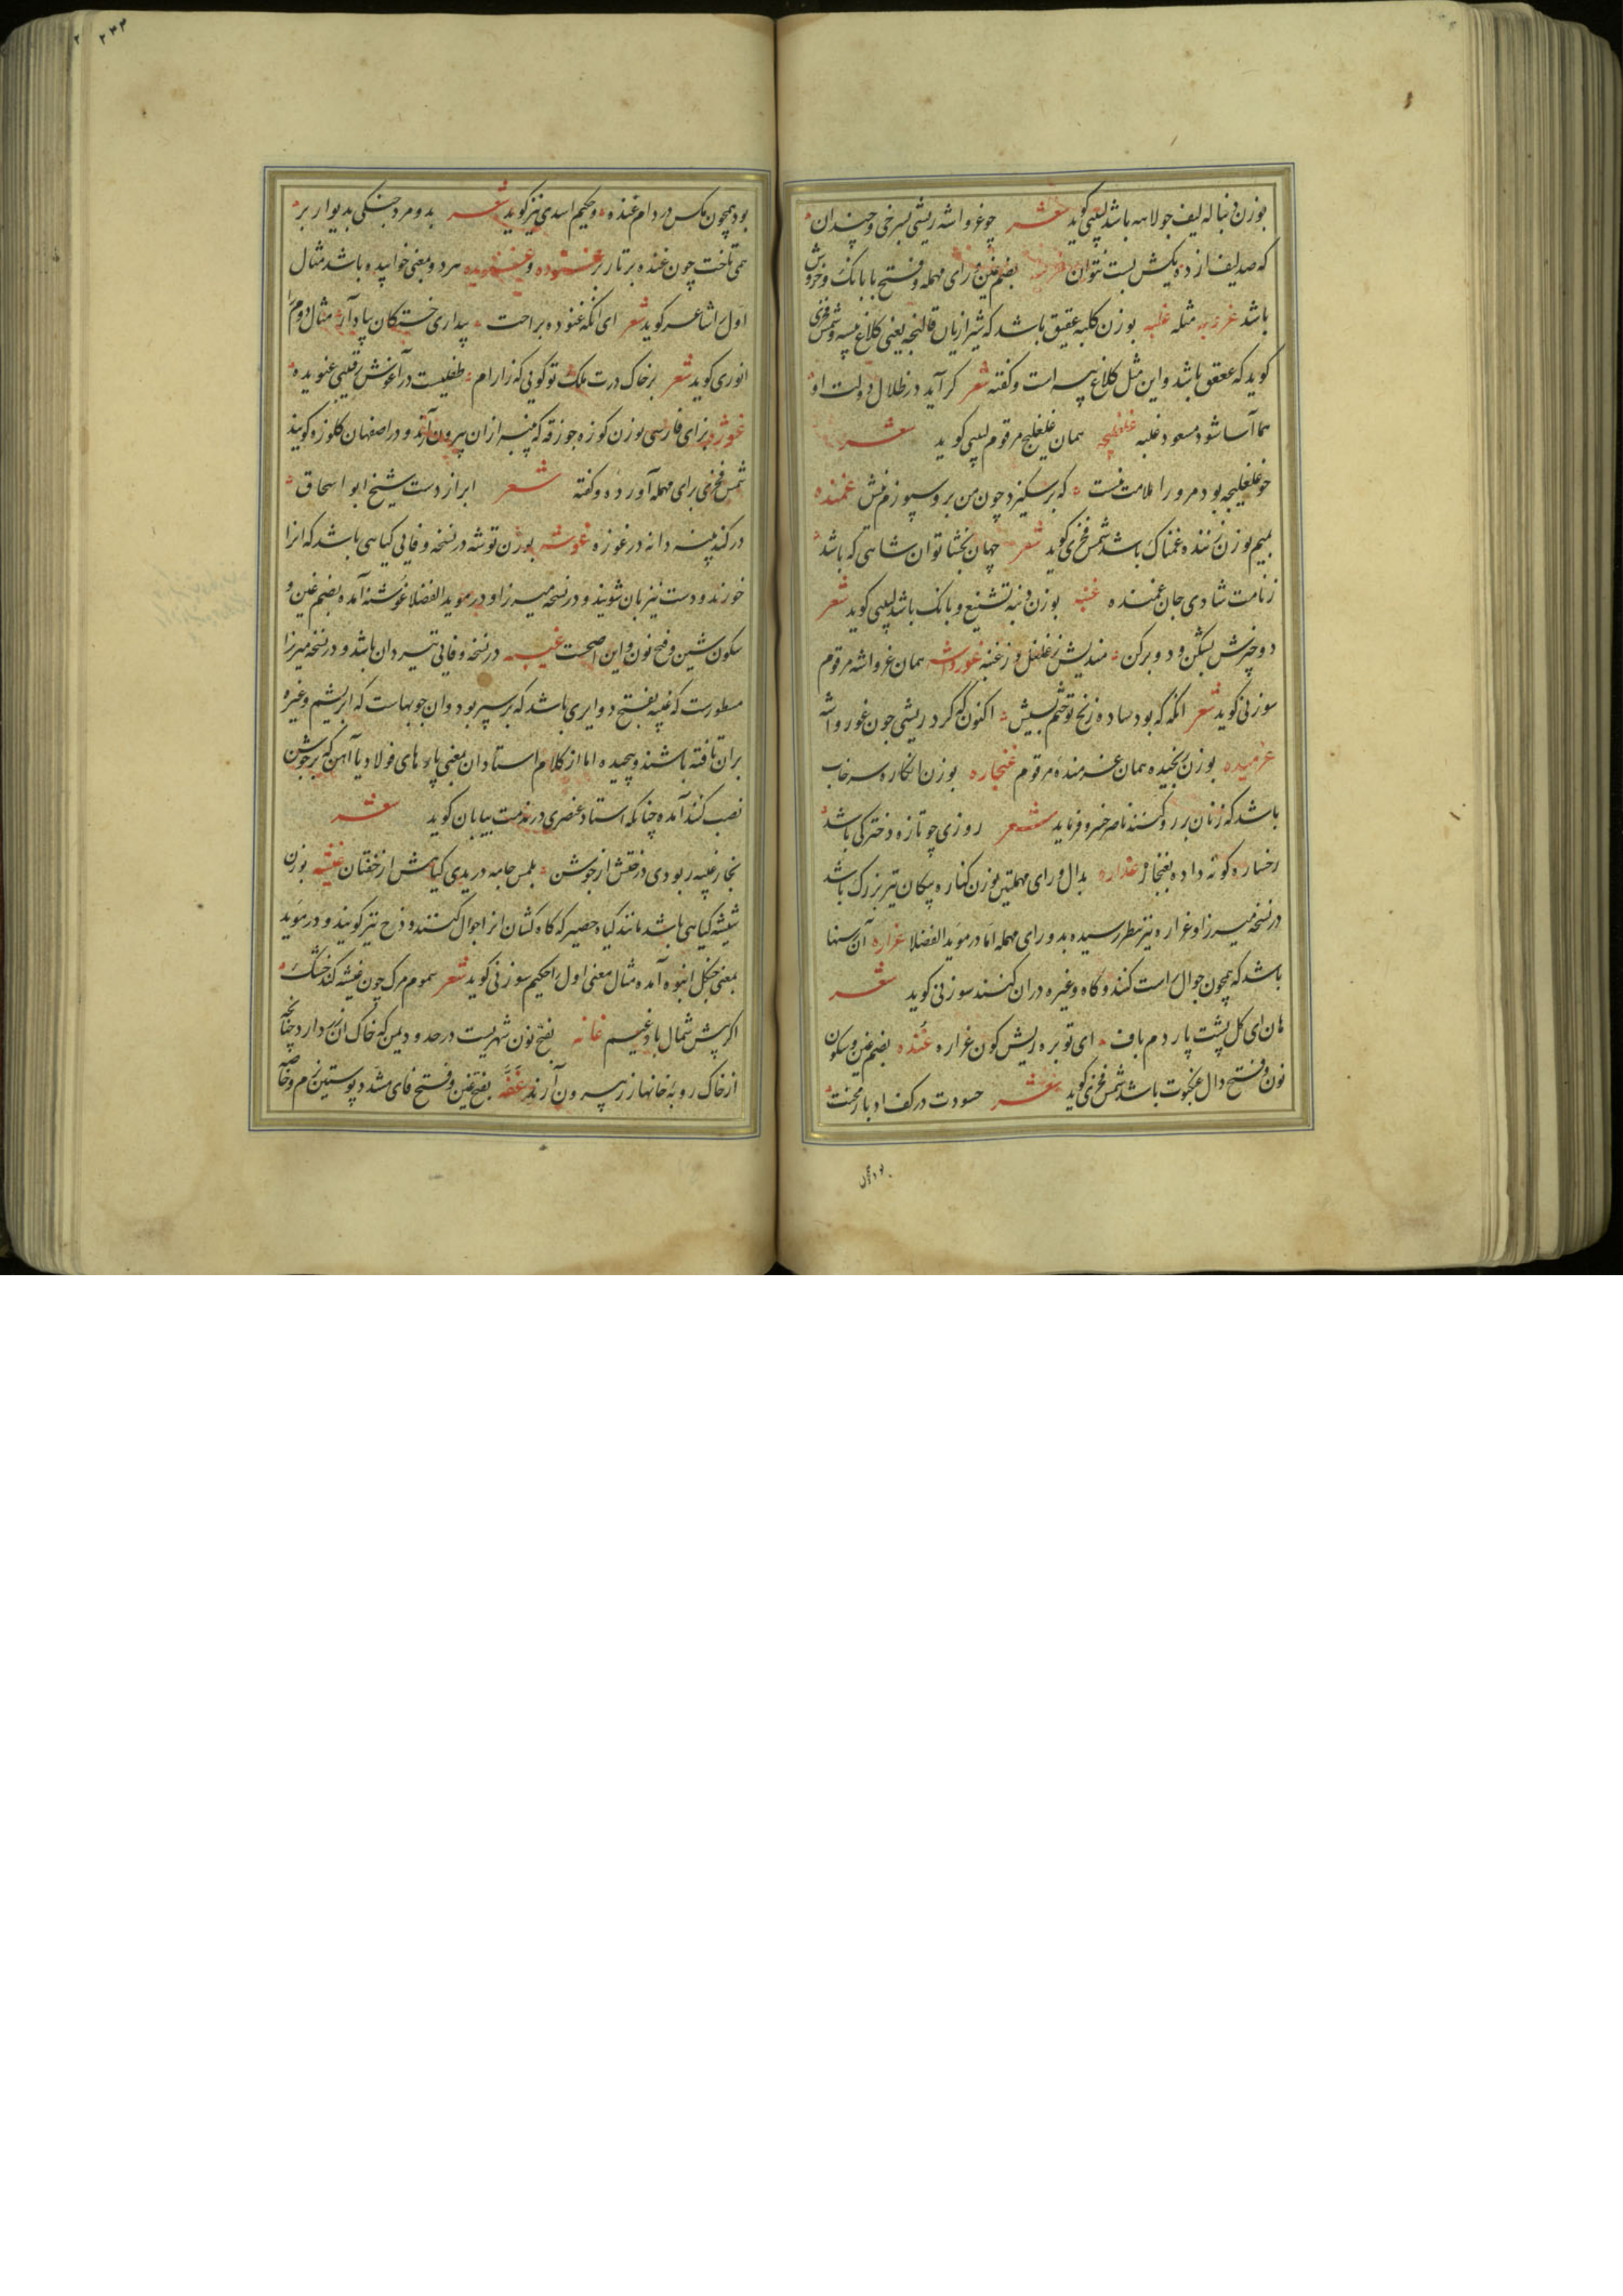 بوزن دنباله لیف جولاهه باشد لبیبی کوید شعر چو غرواشه ریشی بسرخی و چندان
که صد لیف از ده یکیش بست نتوان بضم غین و رای مهمله و فتح با بانک و خروش
باشد مثله غلبه بوزن کلبه عقیق باشد که شیرازیان قالنجه یعنی کلاغ پیسه و شمس فخری
کوید که عقعق باشد و این مثل کلاغ پیسه است و کفته شعر کر آید در ظلال دولت او
هما آسا شود مسعود غلبه غلغلیجه همان غلغلیج مرقوم لبیبی کوید شعر
خو غلغلیجه بود مرو را ملامت نیست که بر سکیزد چون من برو سپوزم نیش غمنده
بمیم بوزن زننده غمناک باشد شمس فخری کوید شعر جهان بخشا توان شاهی که باشد
زنامت شادی جان غمنده غنبه بوزن دنبه تشنیع و بانک باشد لبیبی کوید شعر
دو چیزش بشکن و دو برکن مندیش ز غلغل و ز غنبه غورواشه همان غرواشه مرقوم
سوزنی کوید شعر انکه که بود ساده زنخ تو ختم بپیش اکنون که کرد ریشی چون غورواشه
غرمیده بوزن بخیده همان غرمنده مرقوم غنجاره بوزن انکاره سرخاب
باشد که زنان بر رو کنند ناصر خسرو فرماید شعر روزی چو تازه دخترکی باشد
رخساره کونه داده بغنجار غداره بدال و رای مهملتین بوزن کناره پیکان تیر بزرک باشد
در نسخه میرزا و غراره نیز بنظر رسیده بدو رای مهمله اما در موید الفضلا غراره آن رسنها
باشد که همچون جوال راست کنند و کاه و غیره در ان کنند سوزنی کوید شعر
هان ای کل پشت پاردم باف ای توبره ریش کون غراره غنده بضم غین و سکون
نون و فتح دال عنکبوت باشد شمس فخری کوید شعر حسودت در کف ادبار و محنت
بود همچون مکس در دام غنده و حکیم اسدی نیز کوید شعر بدو مرد جنکی بدیوار بر
همی تاخت چون غنده بر تار بر غنوده و غنویده هر دو بمعنی خوابیده باشد مثال
اول را شاعر کوید شعر ای انکه غنوده براحت بیداری خستکان بیاد آر مثال دوم را
انوری کوید شعر بر خاک درت ملک تو کویی که ز ارام طفلیست در آغوش رقیبی غنویده
غوژه بزای فارسی بوزن کوزه جوزقه که پنبه از ان بیرون آرند و در اصفهان کلوزه کویند
شمس فخری برای مهمله آورده و کفته شعر ابر از دست شیخ ابو اسحاق
در کند پنبه دانه در غوزه غوشه بوزن توشه در نسخه وفایی کیاهی باشد که انرا
خورند و دست نیز بان شویند و در نسخه میرزا و در موید الفضلا غوشنه آمده بضم غین و
سکون شین و فتح نون و این اصحست غیبه در نسخه وفایی تیردان باشد و در نسخه میرزا
مسطورست که غیبه بفتح دوایری باشد که بر سپر بود و ان چوبهاست که ابریشم و غیره
بران تافته باشند و پیچیده اما از کلام استادان بمعنی پاره های فولاد یا آهن که بر جوشن
نصب کنند آمده چنانکه استاد عنصری در مذمت بیابان کوید شعر
بخار غیبه ربودی ز جوشن بلمس جامه دریدی کیاهش از خفتان غیشه بوزن
شیشه کیاهی باشد مانند کیاه حصیر که کاه کشان از ا جوال کنند و ذرخ نیز کویند و در موید
بمعنی جنکل انبوه آمده مثال معنی اول را حکیم سوزنی کوید شعر سموم مرک چون غیشه کند خشک
اکر پیش شمال باد غیسم غانه بفتح نون شهریست در حدود یمن که خاک ان زر دارد چنانچه
از خاک روبه خانها زر بیرون آرند غفه بفتح غین و فتح فای مشدد پوستین نرم و خاصه